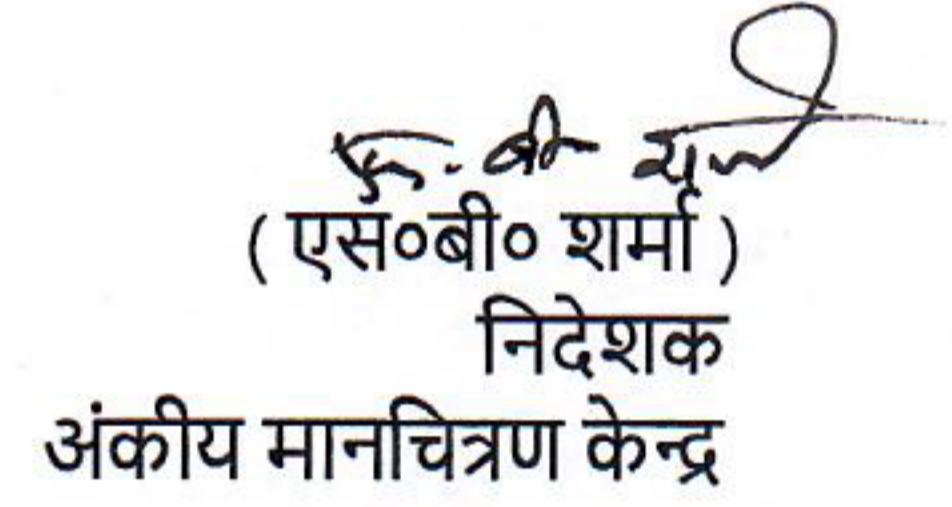 एस. बी शर्मा
( एस०बी० शर्मा )
निदेशक
अंकीय मानचित्रण केन्द्र